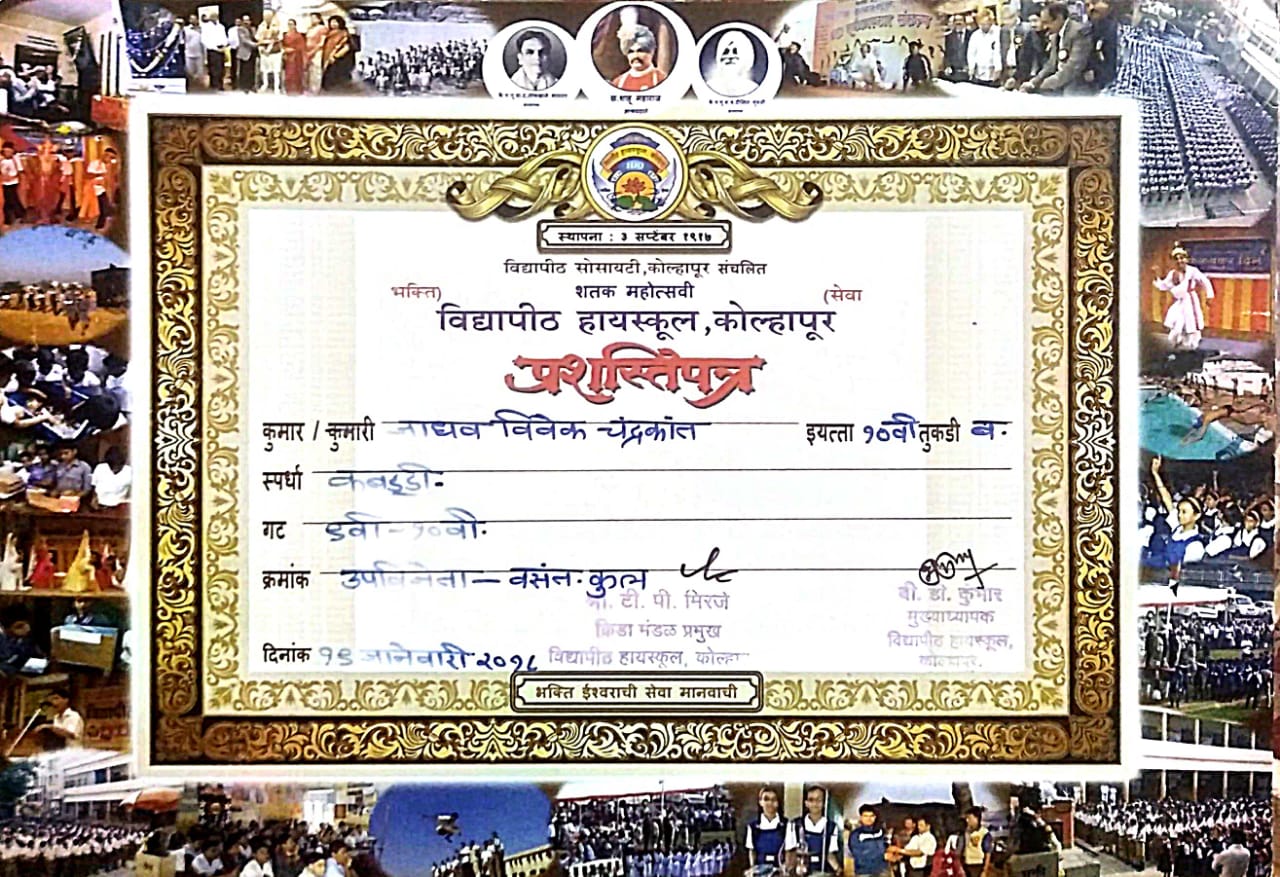 छ. शाहू महाराज
100
स्थापना : ३ सप्टेंबर १९१७
विद्यापीठ सोसायटी,कोल्हापूर संचलित
भक्ति) शतक महोत्सवी (सेवा
विद्यापीठ हायस्कूल,कोल्हापूर
प्रशस्तिपत्र
कुमार / कुमारी जाधव विवेक चंद्रकांत इयत्ता १०वी तुकडी ब.
स्पर्धा कबड्डी.
गट ९वी - १०वी.
क्रमांक उपविजेता - वसंत. कुल
श्री. टी. पी. मिरजे
क्रिडा मंडळ प्रमुख
विद्यापीठ हायस्कूल, कोल्हा
व्ही. डी. कुमार
मुख्याध्यापक
विद्यापीठ हायस्कूल,
कोल्हापूर.
दिनांक १९ जानेवारी २०१८
भक्ति ईश्वराची सेवा मानवाची